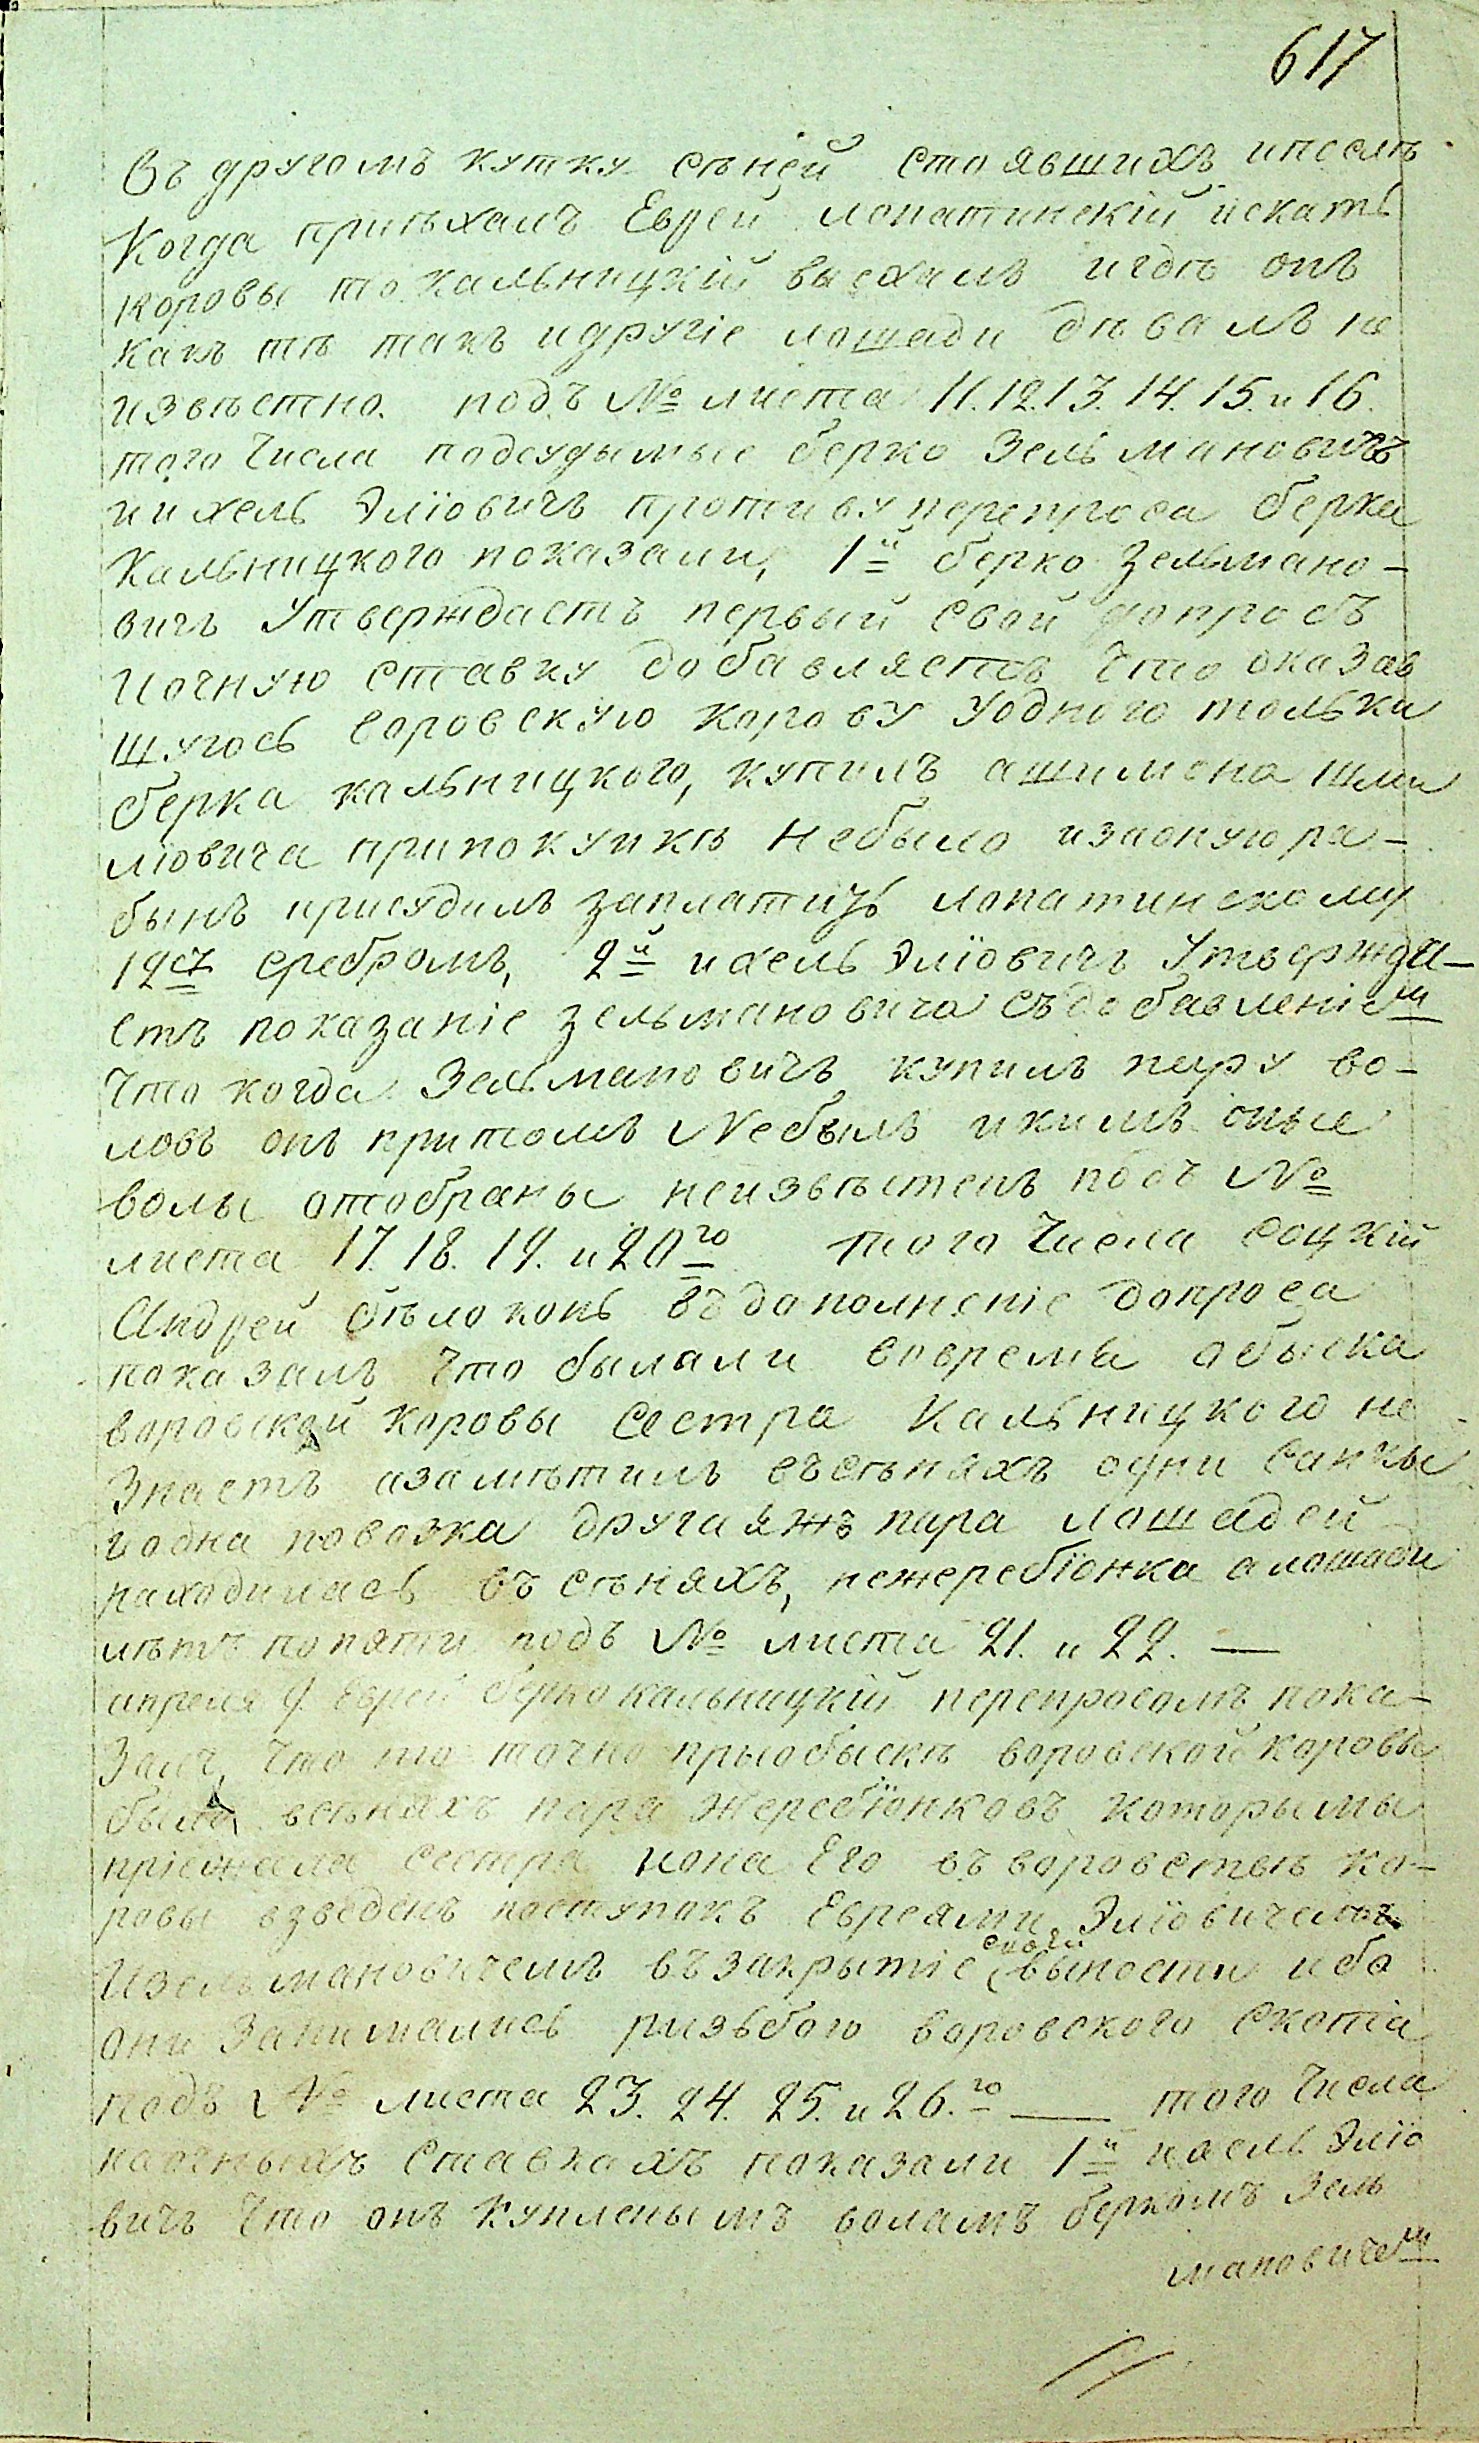 617
Въ другомъ кутку сѣней стоявшихъ ипослѣ
Когда приѣхалъ Еврей лопатинскій искать
коровы то кальницкій выехалъ игдѣ онъ
какъ тѣ такъ идругіе лошади дѣвалъ не
извѣстно. подъ № листа 11. 12. 13. 14. 15. и 16.
того Числа подсудымые берко Зельмановичъ
иихель Эліовичъ противу перепроса берка
Кальницкого показали, 1й берко Зельмано-
вичъ Утверждаетъ первый свой допросъ
иочную ставку добавляетъ Что оказав
шуюсь воровскую корову Уодного только
берка кальницкого, купилъ ашимона шми
лювича припокупкѣ небыло изаоную ра-
бынъ присудилъ заплатить лопатинскому
12 сереbромъ, 2й ихель Эліовичъ Утвержда-
етъ показаніе зельмановича съдобавленіем
Что когда Зельмановичъ купилъ пару во-
ловъ онъ притомъ Небылъ икимъ оные
волы отобраны неизвѣстенъ подъ №
листа 17. 18. 19. и 20го того Числа соцкій
Андрей бѣлоконь въдополненіе допроса
показалъ Что былали вовремя обыска
воровской коровы Сестра Кальницкого не
Знаетъ азамѣтилъ въсѣняхъ одни санки
иодна повозка другаяжъ пара лошадей
находилась въ сѣняхъ, нежеребіонка алошади
лѣтъ попяти подъ № листа 21. и 22. —
апреля 9. Еврей берко кальницкій перепросомъ пока-
Залъ, Что то точно приобыскѣ воровской коровы
была всѣняхъ пара жеребіонковъ которымы
пріежала сестра иона Его въворовствѣ ко-
ровы взведенъ поступокъ Евреями Эліовичемъ
Изельмановичемъ въ закрытіе своей выности ибо
они Занимались ризьбою воровского скота
подъ № листа 23. 24. 25. и 26.го — того Числа
наочныхъ Ставкахъ показали 1й ихель Эліо
вичъ Что онъ купленымъ воламъ беркомъ Зель
мановичем